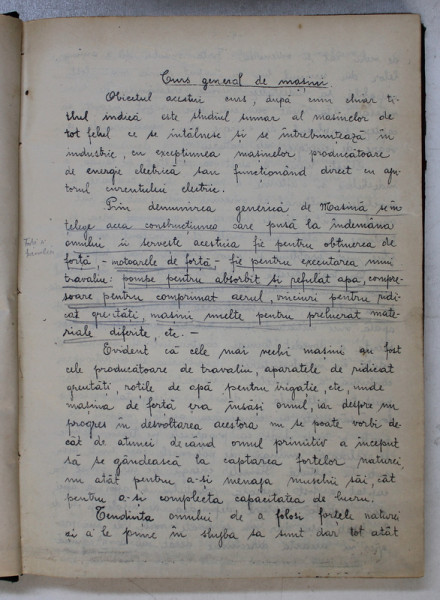 Curs general de mașini
Obiectul acestui curs, după cum chiar ti-
tlul indică este studiul sumar al mașinelor de
tot felul ce se întâlnesc și se întrebuințează în
industrie, cu excepțiunea mașinelor producătoare
de energie electrică sau funcționând direct cu aju-
torul curentului electric.
Prin denumirea generică de Mașină se în-
țelege acea construcțiune care pusă la îndemâna
omului îi servește acestuia fie pentru obținerea de
forță, - motoarele de forță - fie pentru executarea unui
travaliu: pompe pentru absorbit și refulat apa, compre-
soare pentru comprimat aerul, vinciuri pentru ridi-
cat greutăți, mașini unelte pentru prelucrat mate-
riale diferite, etc. -
Evident că cele mai vechi mașini au fost
cele producătoare de travaliu, aparatele de ridicat
greutăți, roțile de apă pentru irigație, etc, unde
mașina de forță era însăși omul, iar despre un
progres în desvoltarea acestora nu se poate vorbi de-
cât de atunci decând omul primitiv a început
să se gândească la captarea forțelor naturei,
nu atât pentru a-și menaja mușchii săi, cât
pentru a-și complecta capacitatea de lucru.
Tendința omului de a folosi forțele naturei
și a le pune în slujba sa sunt dar tot atât